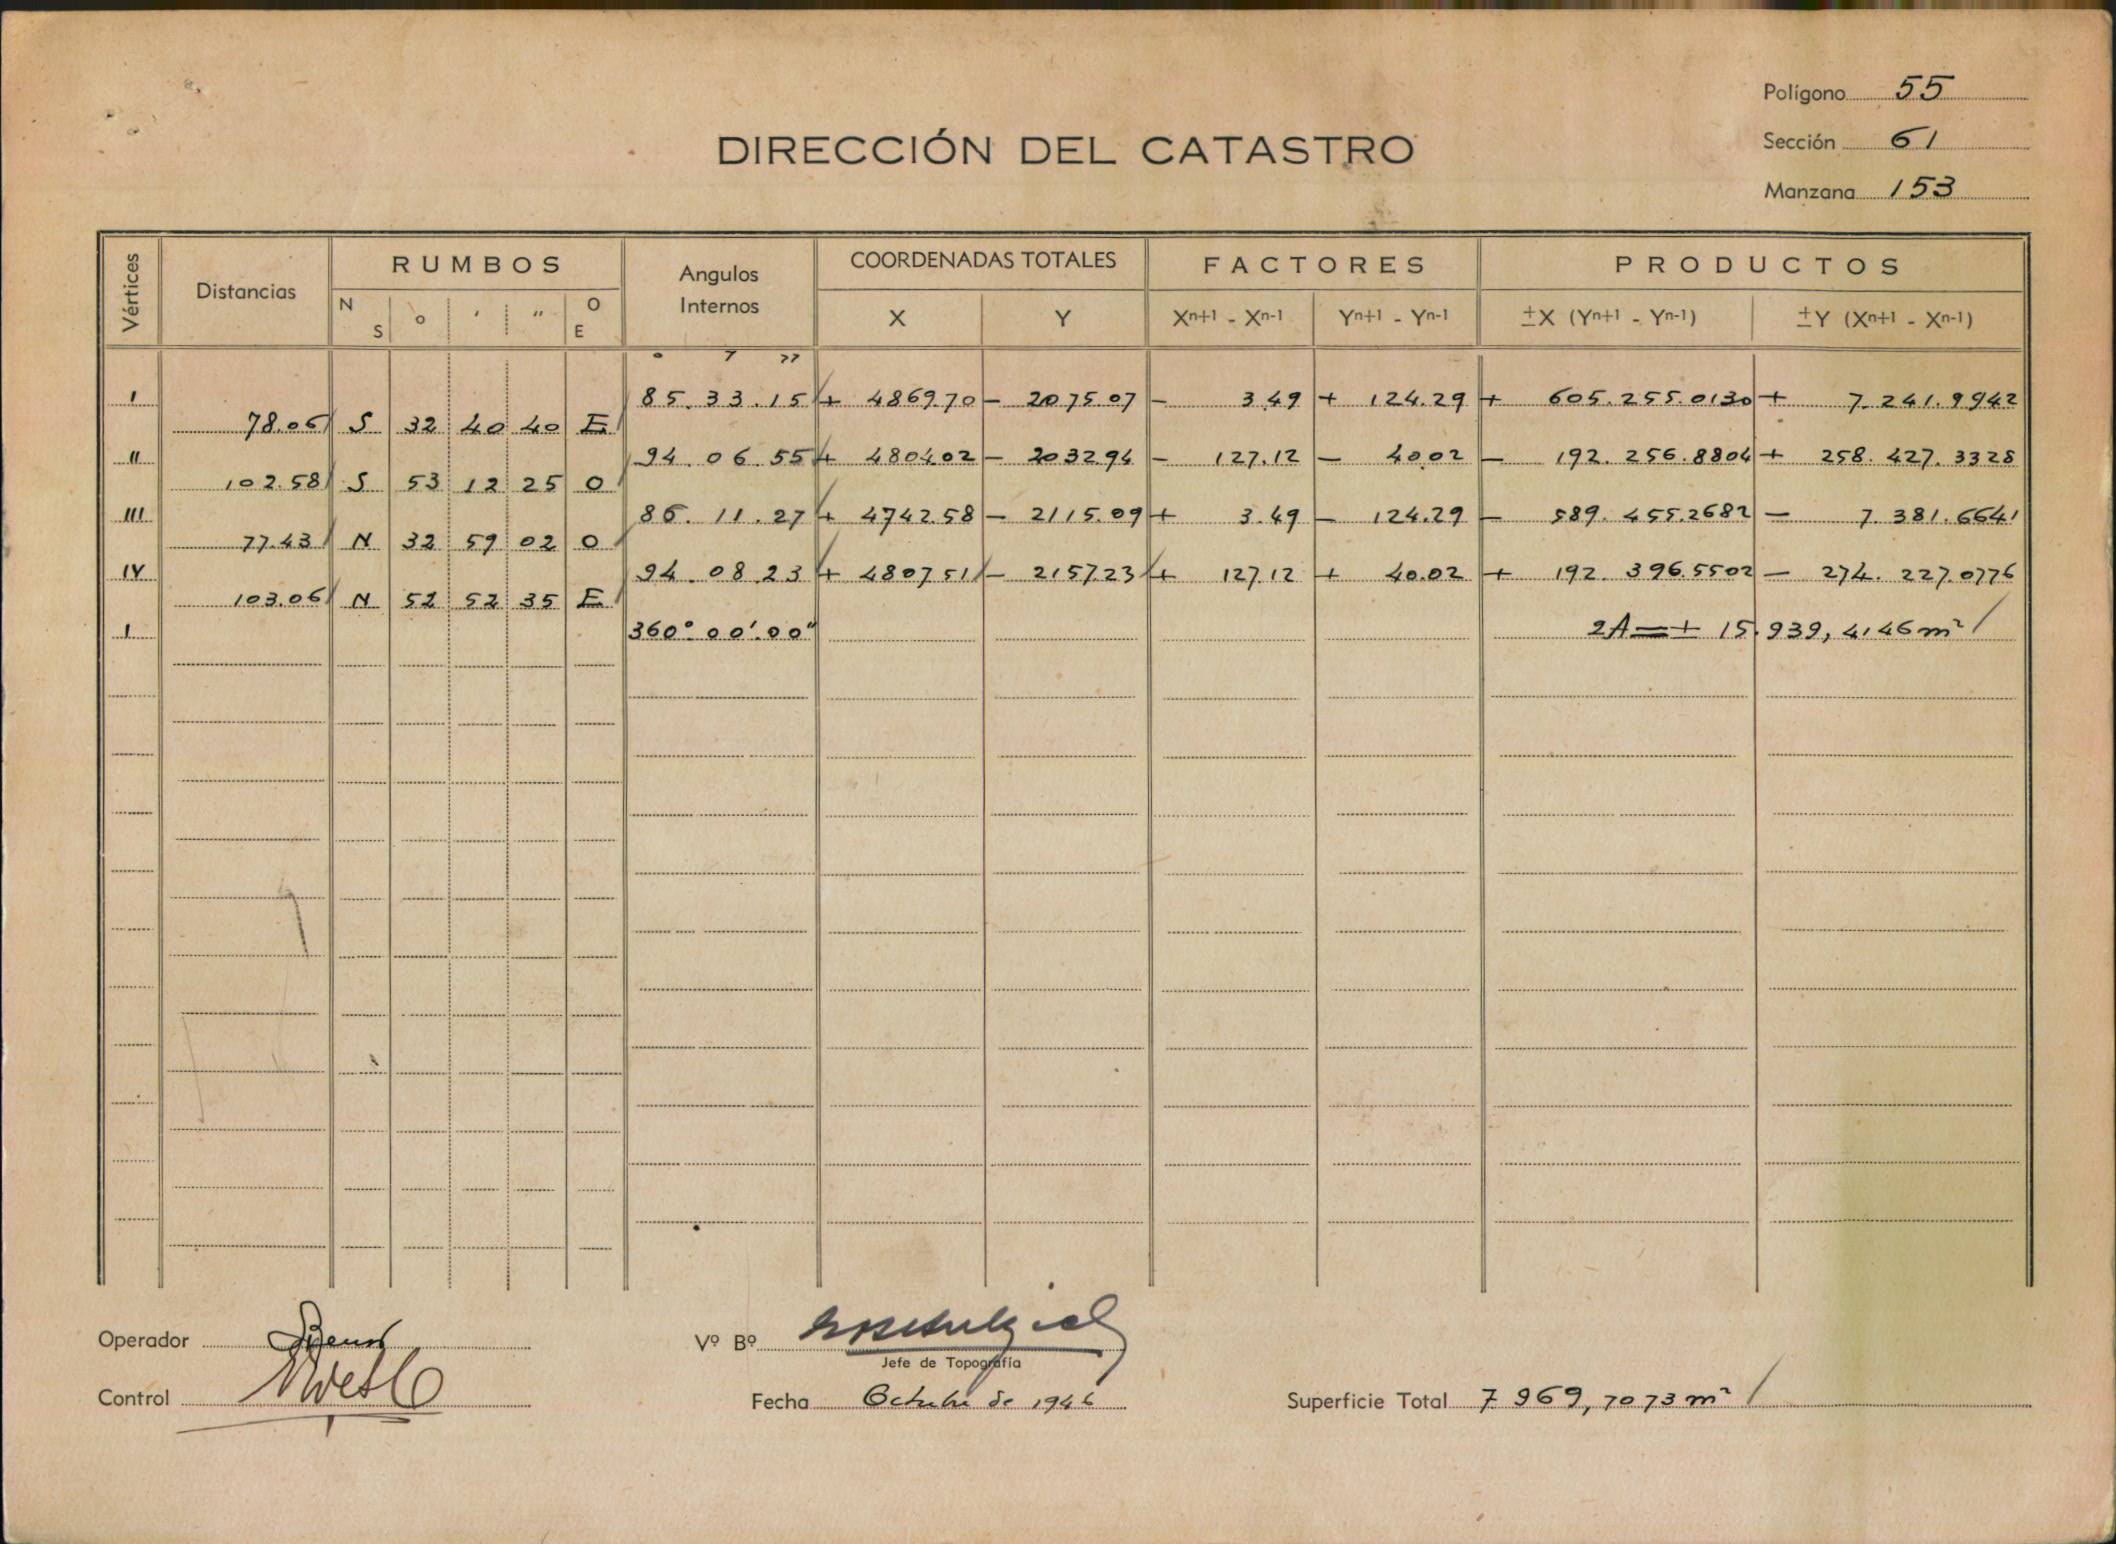 Polígono 55
DIRECCIÓN DEL CATASTRO
Sección 61
Manzana 153
Vértices Distancias RUMBOS Angulos Internos COORDENADAS TOTALES FACTORES PRODUCTOS
N S ° ' " O E X Y Xn+1 - Xn-1 Yn+1 - Yn-1 ±X (Yn+1 - Yn-1) ±Y (Xn+1 - Xn-1)
° ' "
I 85.33.15 + 4869.70 - 2075.07 - 3.49 + 124.29 + 605.255.0130 + 7.241.9942
78.06 S 32 40 40 E
II 94.06.55 + 4804.02 - 2032.94 - 127.12 - 40.02 - 192.256.8804 + 258.427.3328
102.58 S 53 12 25 O
III 86.11.27 + 4742.58 - 2115.09 + 3.49 - 124.29 - 589.455.2682 - 7.381.6641
77.43 N 32 59 02 O
IV 94.08.23 + 4807.51 - 2157.23 + 127.12 + 40.02 + 192.396.5502 - 274.227.0776
103.06 N 52 52 35 E
I 360°00'.00" 2A=+ 15.939,4146 m²
Operador
Vº Bº
Jefe de Topografía
Control
Fecha Octubre de 1946
Superficie Total 7 969,7073 m²